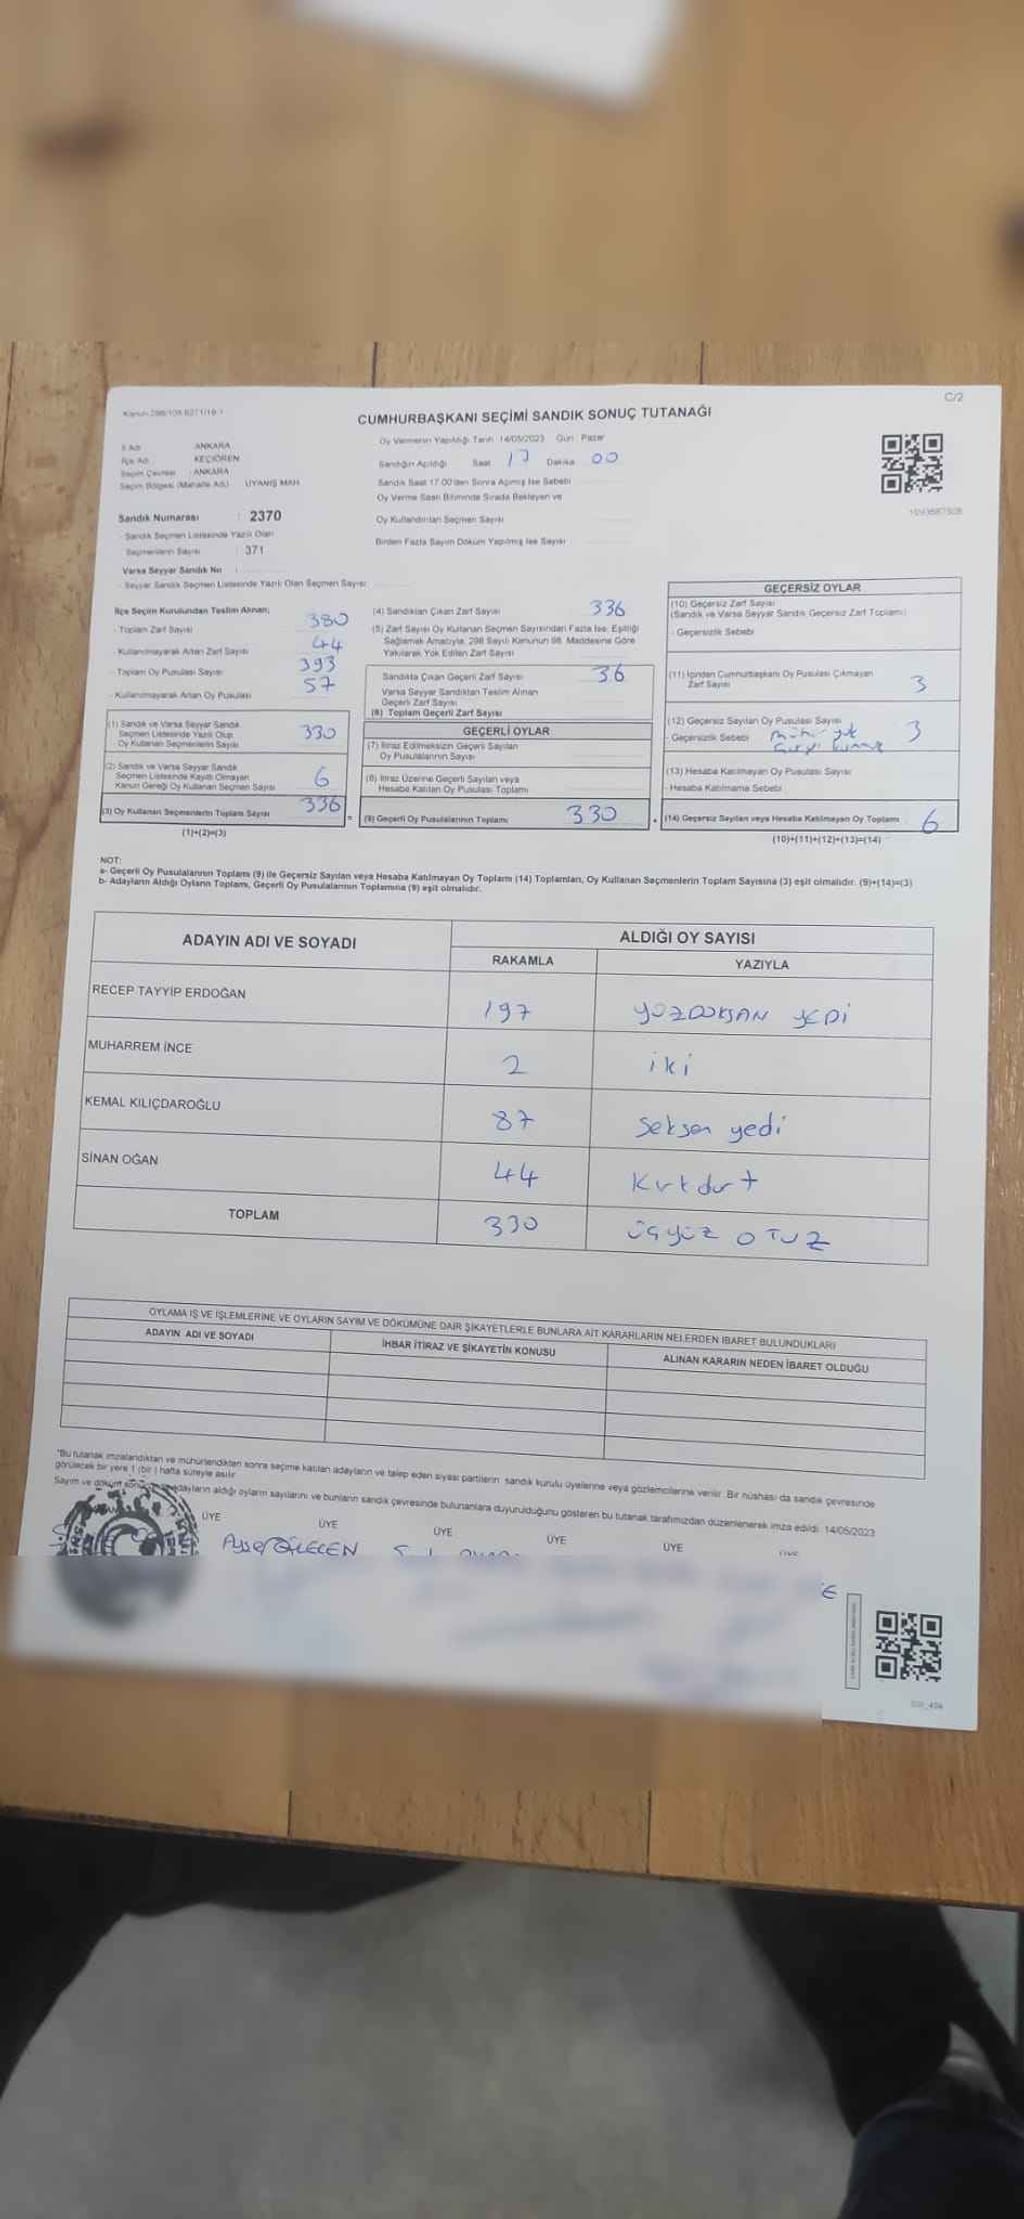 C/2
Kanun 298/105 6271/19-1
CUMHURBAŞKANI SEÇİMİ SANDIK SONUÇ TUTANAĞI
İl Adı ANKARA
İlçe Adı KEÇİÖREN
Seçim Çevresi ANKARA
Seçim Bölgesi (Mahalle Adı) UYANIŞ MAH
Sandık Numarası : 2370
Sandık Seçmen Listesinde Yazılı Olan
Seçmenlerin Sayısı : 371
Varsa Seyyar Sandık No :
- Seyyar Sandık Seçmen Listesinde Yazılı Olan Seçmen Sayısı
Oy Vermenin Yapıldığı Tarih 14/05/2023 Gün Pazar
Sandığın Açıldığı Saat 17 Dakika 00
Sandık Saat 17.00'den Sonra Açılmış İse Sebebi
Oy Verme Saati Bitiminde Sırada Bekleyen ve
Oy Kullandırılan Seçmen Sayısı
Birden Fazla Sayım Döküm Yapılmış İse Sayısı
İlçe Seçim Kurulundan Teslim Alınan;
- Toplam Zarf Sayısı 380
- Kullanılmayarak Artan Zarf Sayısı 44
- Toplam Oy Pusulası Sayısı 393
- Kullanılmayarak Artan Oy Pusulası 57
(1) Sandık ve Varsa Seyyar Sandık
Seçmen Listesinde Yazılı Olup
Oy Kullanan Seçmenlerin Sayısı 330
(2) Sandık ve Varsa Seyyar Sandık
Seçmen Listesine Kayıtlı Olmayan
Kanun Gereği Oy Kullanan Seçmen Sayısı 6
(3) Oy Kullanan Seçmenlerin Toplam Sayısı 336 =
(1)+(2)=(3)
(4) Sandıktan Çıkan Zarf Sayısı 336
(5) Zarf Sayısı Oy Kullanan Seçmen Sayısından Fazla İse, Eşitliği
Sağlamak Amacıyla, 298 Sayılı Kanunun 98. Maddesine Göre
Yakılarak Yok Edilen Zarf Sayısı
Sandıkta Çıkan Geçerli Zarf Sayısı 36
Varsa Seyyar Sandıktan Teslim Alınan
Geçerli Zarf Sayısı
(6) Toplam Geçerli Zarf Sayısı
GEÇERLİ OYLAR
(7) İtiraz Edilmeksizin Geçerli Sayılan
Oy Pusulalarının Sayısı
(8) İtiraz Üzerine Geçerli Sayılan veya
Hesaba Katılan Oy Pusulası Toplamı
(9) Geçerli Oy Pusulalarının Toplamı 330 +
GEÇERSİZ OYLAR
(10) Geçersiz Zarf Sayısı
(Sandık ve Varsa Seyyar Sandık Geçersiz Zarf Toplamı)
- Geçersizlik Sebebi
(11) İçinden Cumhurbaşkanı Oy Pusulası Çıkmayan
Zarf Sayısı 3
(12) Geçersiz Sayılan Oy Pusulası Sayısı 3
- Geçersizlik Sebebi
(13) Hesaba Katılmayan Oy Pusulası Sayısı
- Hesaba Katılmama Sebebi
(14) Geçersiz Sayılan veya Hesaba Katılmayan Oy Toplamı 6
(10)+(11)+(12)+(13)=(14)
NOT:
a- Geçerli Oy Pusulalarının Toplamı (9) ile Geçersiz Sayılan veya Hesaba Katılmayan Oy Toplamı (14) Toplamları, Oy Kullanan Seçmenlerin Toplam Sayısına (3) eşit olmalıdır. (9)+(14)=(3)
b- Adayların Aldığı Oyların Toplamı, Geçerli Oy Pusulalarının Toplamına (9) eşit olmalıdır.
ADAYIN ADI VE SOYADI ALDIĞI OY SAYISI
RAKAMLA YAZIYLA
RECEP TAYYİP ERDOĞAN 197 YÜZDOKSAN YEDİ
MUHARREM İNCE 2 iki
KEMAL KILIÇDAROĞLU 87 Seksen yedi
SİNAN OĞAN 44 Kırkdört
TOPLAM 330 üçyüz OTUZ
OYLAMA İŞ VE İŞLEMLERİNE VE OYLARIN SAYIM VE DÖKÜMÜNE DAİR ŞİKAYETLERLE BUNLARA AİT KARARLARIN NELERDEN İBARET BULUNDUKLARI
ADAYIN ADI VE SOYADI İHBAR İTİRAZ VE ŞİKAYETİN KONUSU ALINAN KARARIN NEDEN İBARET OLDUĞU
"Bu tutanak imzalandıktan ve mühürlendikten sonra seçime katılan adayların ve talep eden siyasi partilerin sandık kurulu üyelerine veya gözlemcilerine verilir. Bir nüshası da sandık çevresinde
görülecek bir yere 1 (bir) hafta süreyle asılır.
Sayım ve döküm adayların aldığı oyların sayılarını ve bunların sandık çevresinde bulunanlara duyurulduğunu gösteren bu tutanak tarafımızdan düzenlenerek imza edildi. 14/05/2023
ÜYE ÜYE ÜYE ÜYE ÜYE